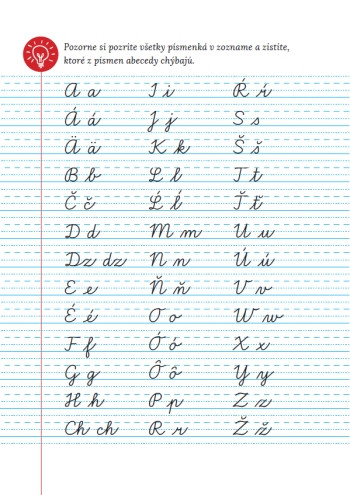 Pozorne si pozrite všetky písmenká v zozname a zistite,
ktoré z písmen abecedy chýbajú.
A a I i Ŕ ŕ
Á á J j S s
Ä ä K k Š š
B b L l T t
Č č Ĺ ĺ Ť ť
D d M m U u
Dz dz N n Ú ú
E e Ň ň V v
É é O o W w
F f Ó ó X x
G g Ô ô Y y
H h P p Z z
Ch ch R r Ž ž